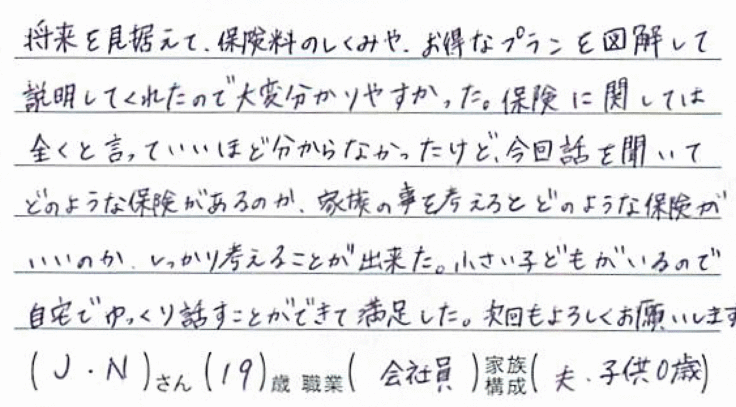 将来を見据えて、保険料のしくみや、お得なプランを図解して
説明してくれたので大変分かりやすかった。保険に関しては
全くと言っていいほど分からなかったけど、今回話を聞いて
どのような保険があるのか、家族の事を考えるとどのような保険が
いいのか、しっかり考えることが出来た。小さい子どもがいるので
自宅でゆっくり話すことができて満足した。次回もよろしくお願いします
(J・N)さん(19)歳 職業(会社員)家族構成(夫、子供0歳)